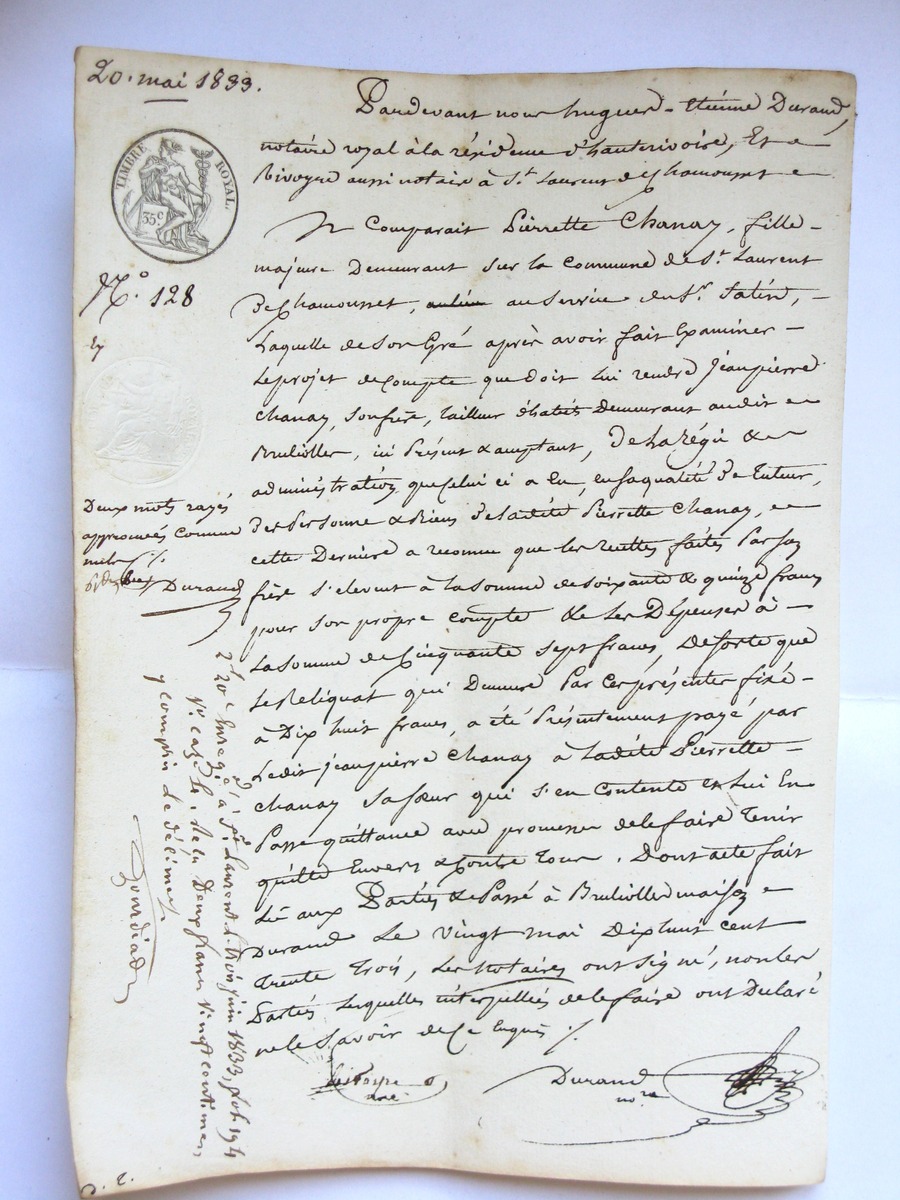 20. mai 1833.
TIMBRE ROYAL
35c
No. 128
Pardevant nous hugues - Etiénne Durand,
notaire royal à la résidence d'hauterivoire, Et
bivoyre aussi notaire à St. Laurent de Chamousset
Comparait Pierrette Chanay, fille
majeure Demeurant sur la Commune de St. Laurent
De Chamousset, au Service du Sr.
Laquelle de Son Gré après avoir fait Examiner
Le projet de Compte que doit Lui rendre Jeanpierre
Chanay, Son frère, tailleur d'habits Demeurant audit
Brulliolle, ici Présent & acceptant, De La régie &
administration que Celui ci a Eu, en sa qualité De Tuteur,
Des Personne & Biens De Ladite Pierrette Chanay,
cette Dernière a reconnu que les recettes faites Par Son
frère S'elevent à La Somme de Soixante & quinze francs
pour Son propre compte & Les Dépenses à
La Somme de Cinquante Sept francs, De Sorte que
Le Reliquat qui Demeure Par Ces présentes fixé
à Dix huit francs, a été Présentement payé par
Ledit jeanpierre Chanay à Ladite Pierrette
Chanay Sa Sœur qui S'en Contente & Lui En
Passe quittance avec promesse de le faire Tenir
quitte Envers & Contre Tous. Dont acte fait
Lû aux Parties & Passé à Brulliolle maison
Durand Le Vingt mai Dix huit cent
Trente Trois, Les Notaires ont Signé, non les
Parties Lesquelles interpellées de le faire ont Déclaré
ne le Savoir de Ce Enquis ./.
Deux mots rayés
approuvés Comme
nuls ./.
Durand
Enregé. à St. Laurent Le trois juin 1833, fol. 194
Vo. Case Reçu Deux francs Vingt centimes
y compris Le décime.
Durand
nore